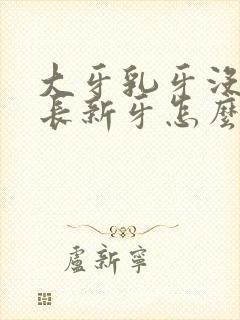 大牙乳牙沒
長新牙怎麼
盧新寧